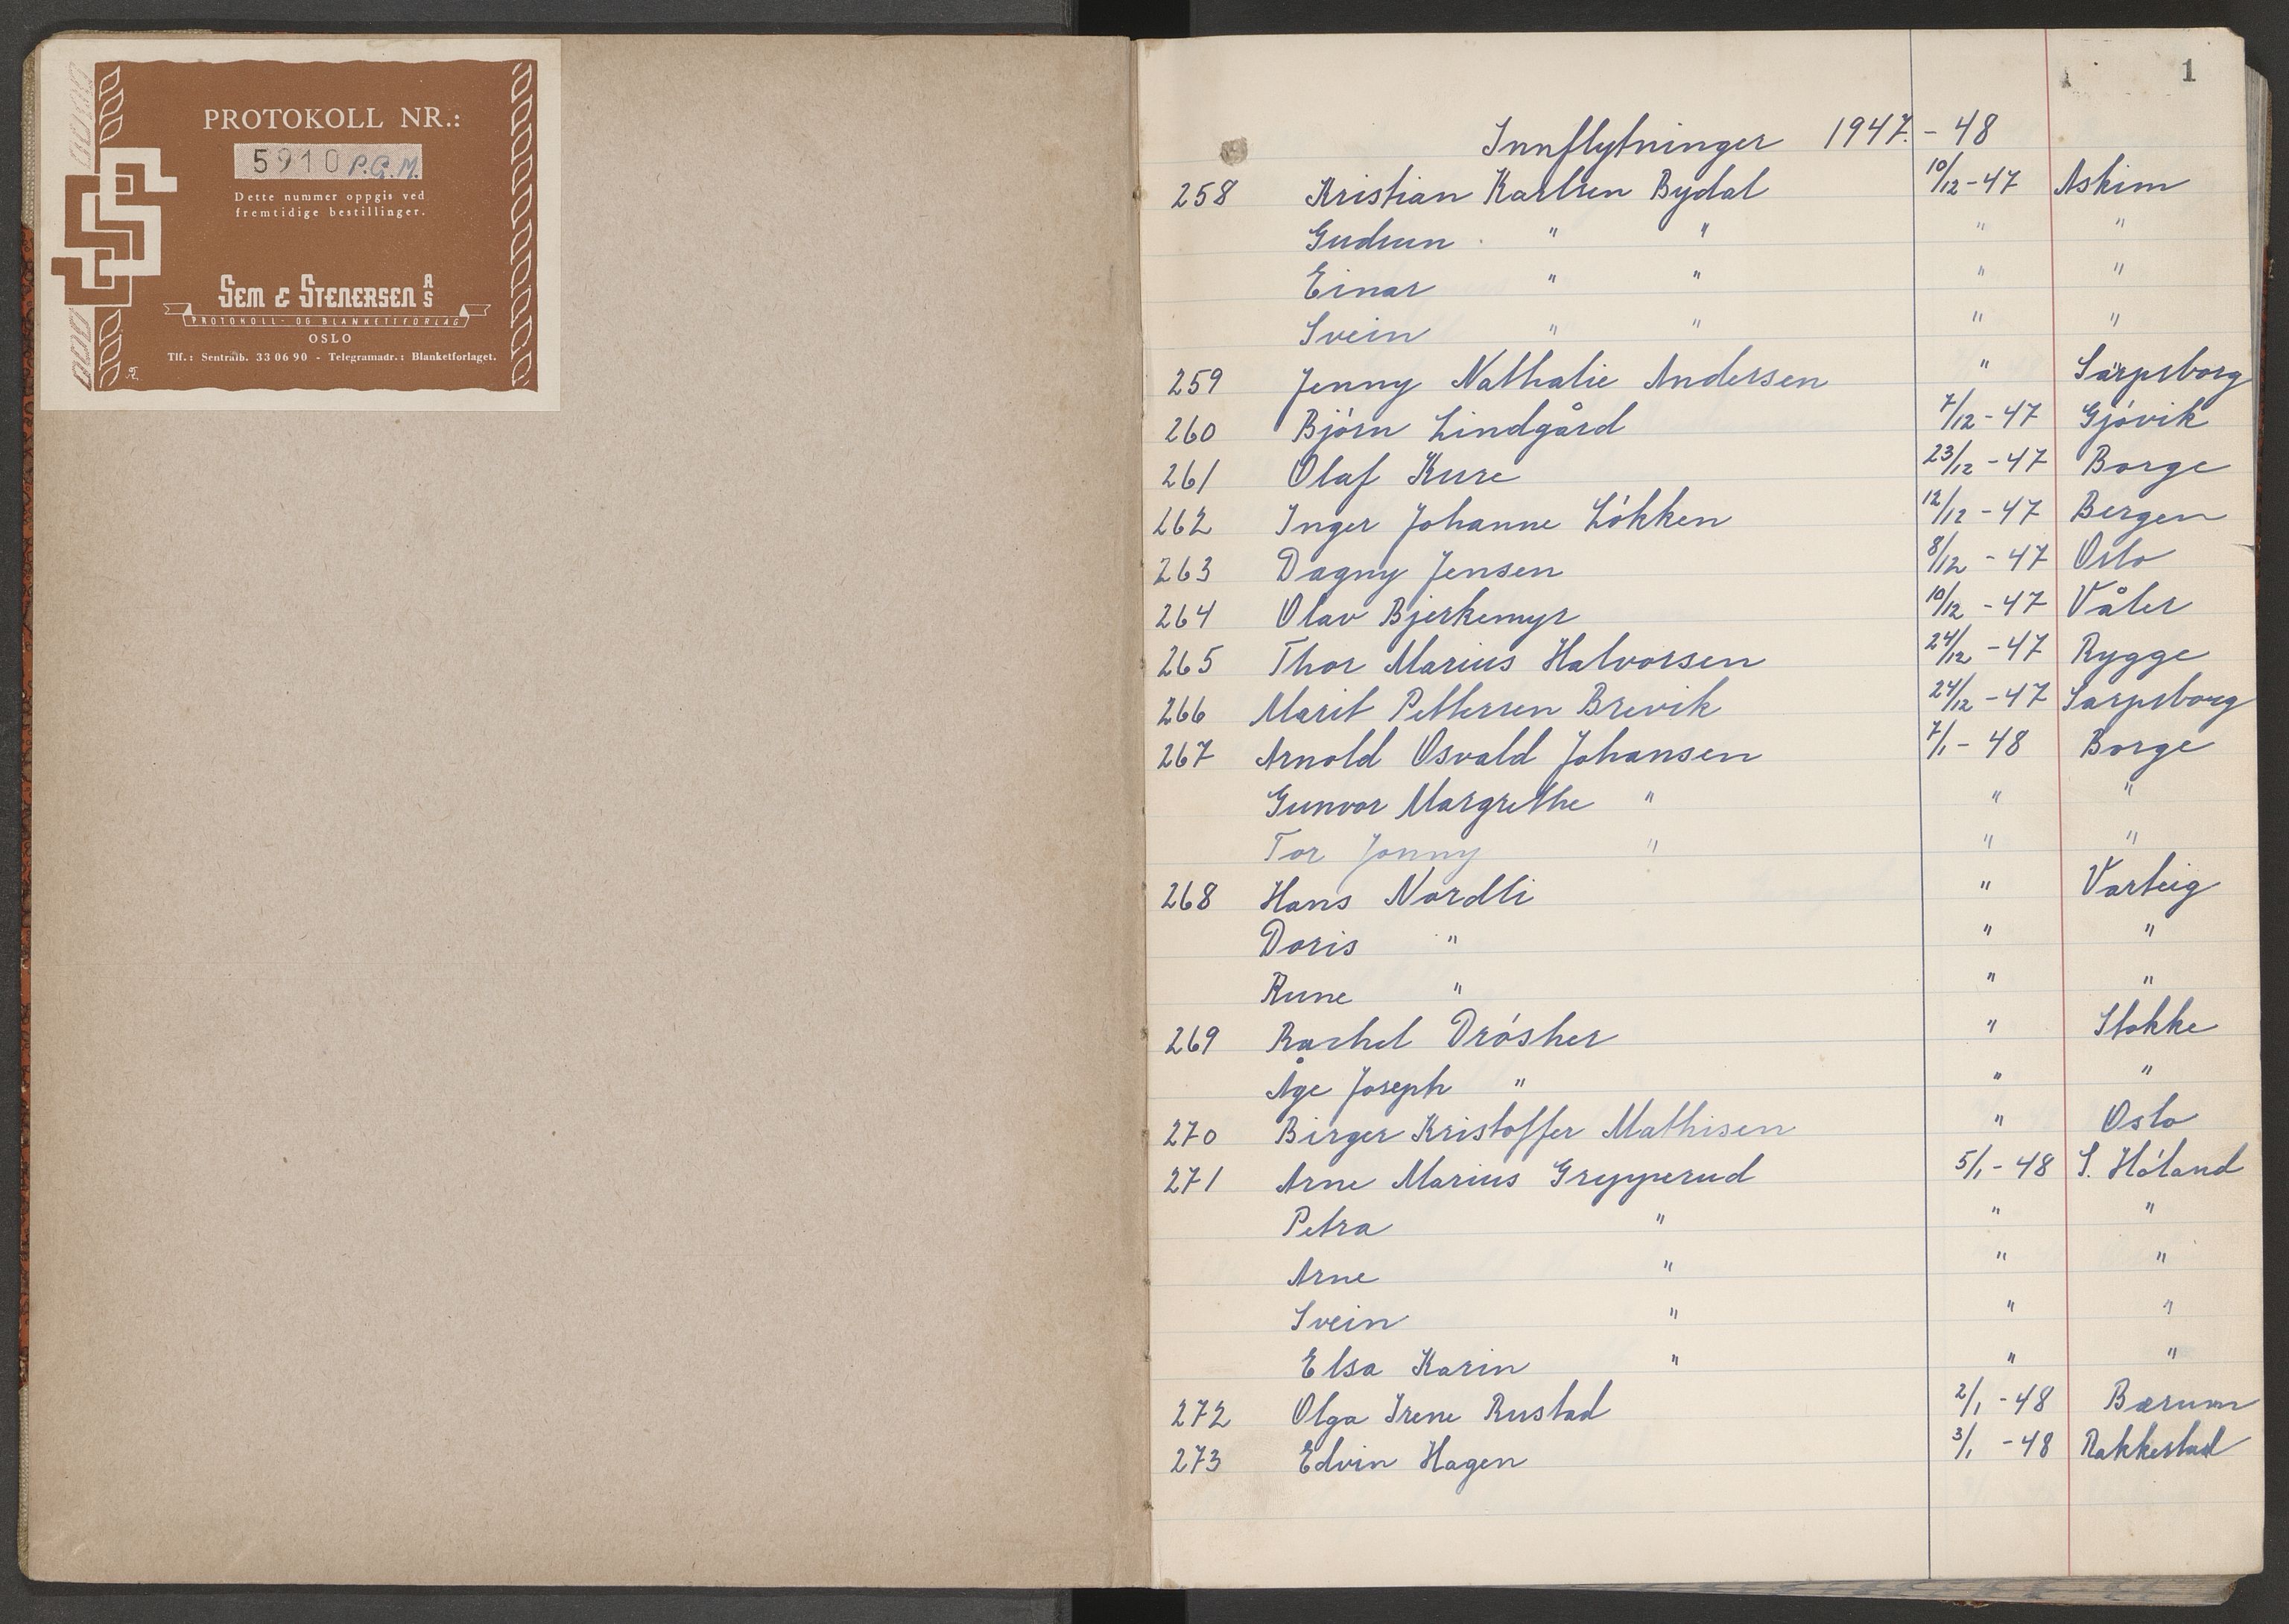 PROTOKOLL NR.:
5910 P.G.M.
Dette nummer oppgis ved
fremtidige bestillinger.
SEM & STENERSEN A/S
PROTOKOLL- OG BLANKETTFORLAG
OSLO
Tlf.: Sentralb. 33 06 90 - Telegramadr.: Blanketforlaget.
1
Innflytninger 1947 - 48
258 Kristian Karlsen Bydal 10/12-47 Askim
Gudrun " " " "
Einar " " " "
Svein " " " "
259 Jenny Nathalie Andersen " Sarpsborg
260 Bjørn Lindgård 7/12-47 Gjøvik
261 Olaf Kure 23/12-47 Borge
262 Inger Johanne Løkken 12/12-47 Bergen
263 Dagny Jensen 8/12-47 Oslo
264 Olav Bjerkemyr 10/12-47 Våler
265 Thor Marius Halvorsen 24/12-47 Rygge
266 Marit Pettersen Brevik 24/12-47 Sarpsborg
267 Arnold Osvald Johansen 7/1-48 Borge
Gunvor Margrethe " " "
Tor Jonny " " "
268 Hans Nordli " Varteig
Doris " " "
Rune " " "
269 Rachel Drøsher " Stokke
Åge Joseph " " "
270 Birger Kristoffer Mathisen " Oslo
271 Arne Marius Grypperud 5/1-48 S. Høland
Petra " " "
Arne " " "
Svein " " "
Elsa Karin " " "
272 Olga Irene Rustad 2/1-48 Bærum
273 Edvin Hagen 3/1-48 Rakkestad